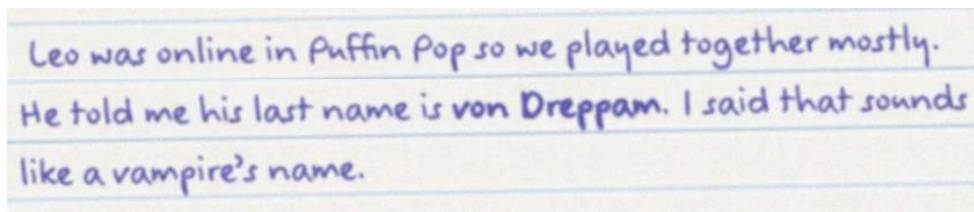 Leo was online in Puffin Pop so we played together mostly.
He told me his last name is von Dreppam. I said that sounds
like a vampire's name.